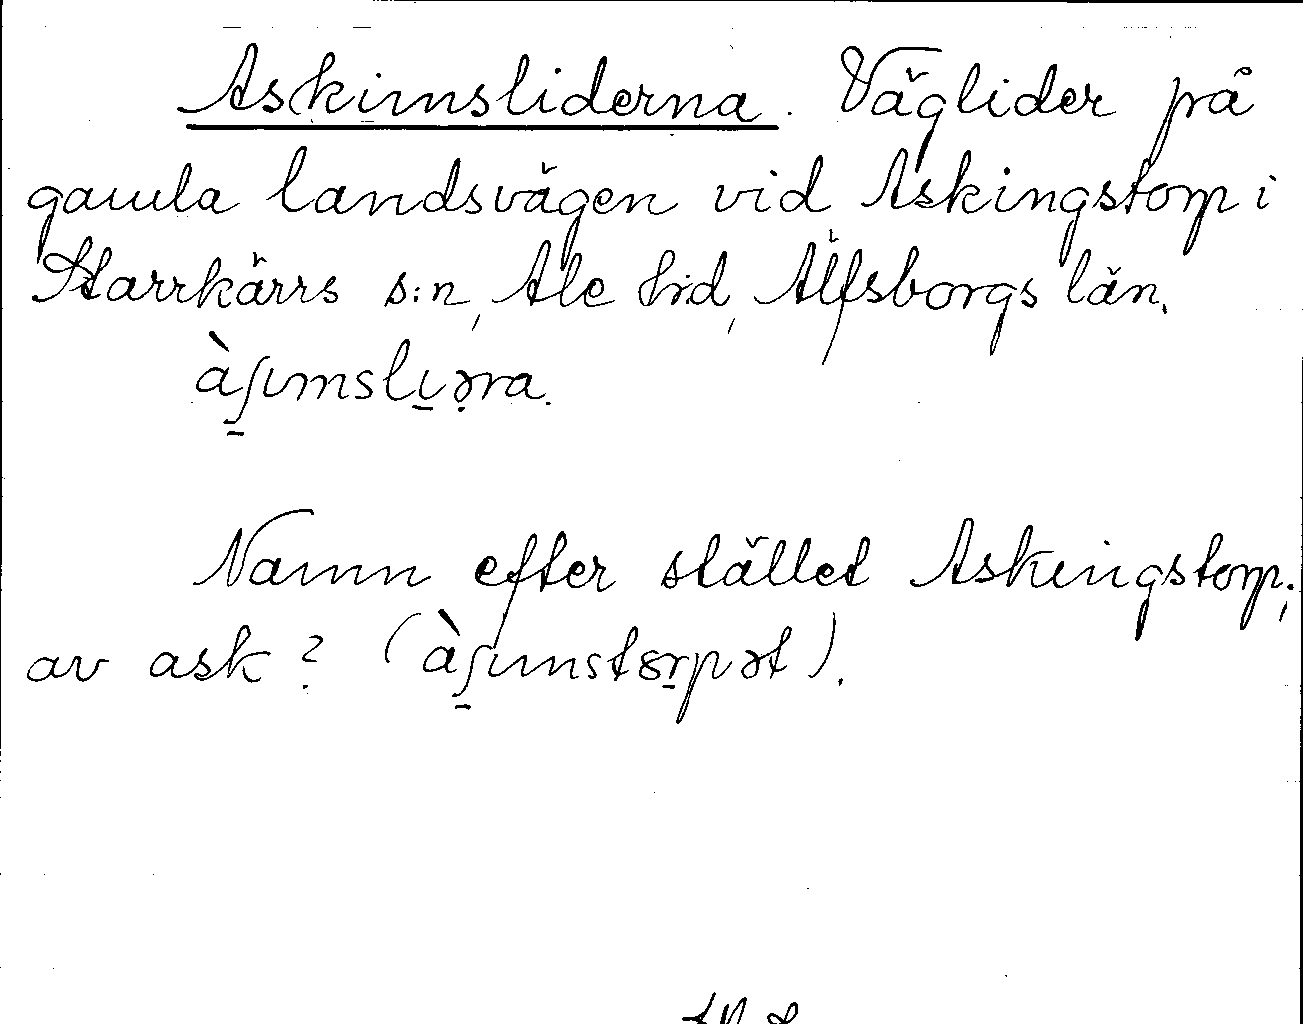 Askimsliderna. Väglider på
gamla landsvägen vid Askingstorp i
Starrkärrs s:n, Ale hrd, Älfsborgs län.
àʃımslı̠ə̣ra.
Namn efter stället Askingstorp;
av ask? (àʃımstɤr̠pət).